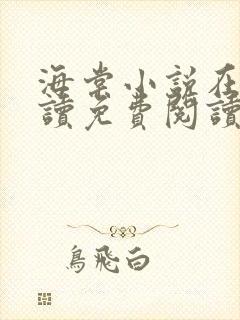 海棠小説在
讀免費閱讀
鳥飛白